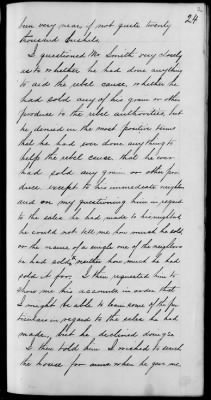 24
been very near if not quite twenty
thousand bushels.
I questioned Mr Smith very closely
as to whether he had done anything
to aid the rebel cause, whether he
had sold any of his grain or other
produce to the rebel authorities, but
he denied in the most positive terms
that he had ever done anything to
help the rebel cause that he ever
had sold any grain or other pro
duce except to his immediate neighbors
and on my questioning him in regard
to the sales he had made to his neighbors
he could not tell me how much he sold
or the name of a single one of the neighbors
he had sold to neither how much he had
sold it for. I then requested him to
show me his accounts in order that
I might be able to learn some of the par
ticulars in regard to the sales he had
made, but he declined doing so
I then told him I wished to search
the house for arms when he gave me